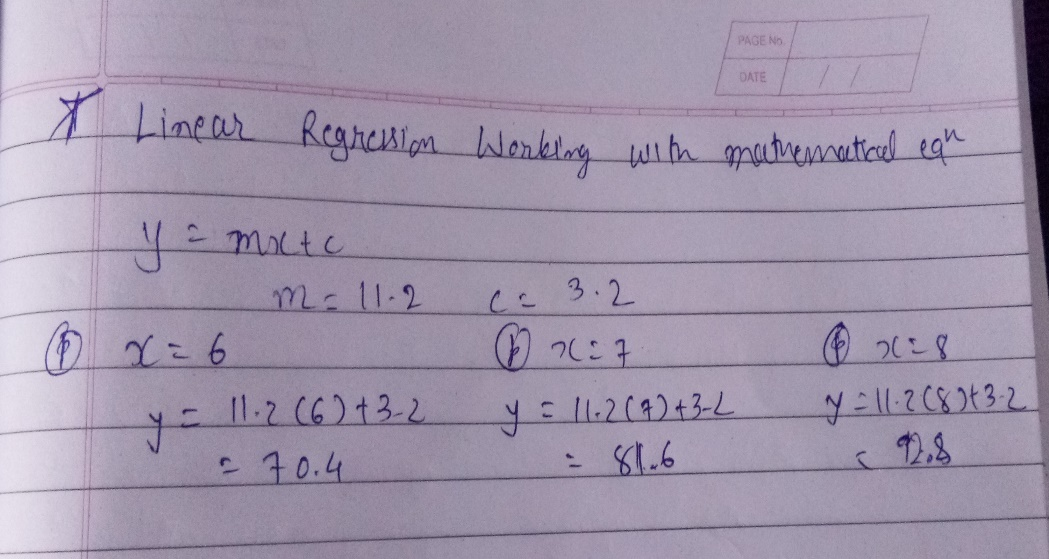 PAGE No.
DATE / /
Linear Regression Working with mathematical eqn
y = mx+c
m = 11.2 c = 3.2
x = 6 x = 7 x = 8
y = 11.2 (6) + 3.2 y = 11.2 (7) + 3.2 y = 11.2 (8) + 3.2
= 70.4 = 81.6 = 92.8